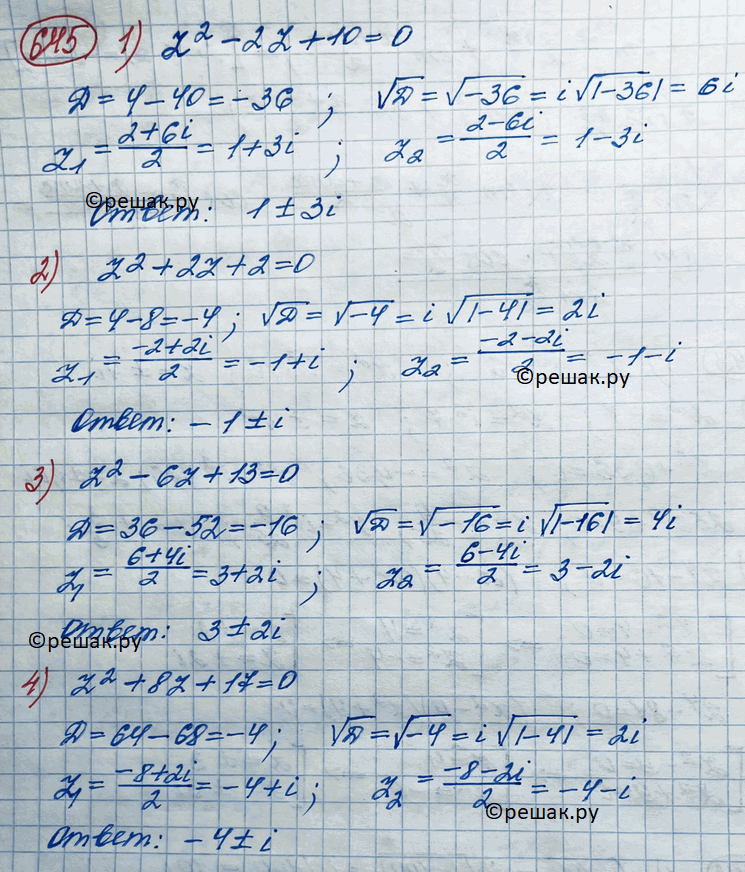 645 1) z² - 2z + 10 = 0
D = 4 - 40 = -36 ; √D = √-36 = i √|-36| = 6i
z₁ = (2+6i)/2 = 1+3i ; z₂ = (2-6i)/2 = 1-3i
©решак.ру
Ответ: 1 ± 3i
2) z² + 2z + 2 = 0
D = 4 - 8 = -4 ; √D = √-4 = i √|-4| = 2i
z₁ = (-2+2i)/2 = -1+i ; z₂ = (-2-2i)/2 = -1-i
©решак.ру
Ответ: -1 ± i
3) z² - 6z + 13 = 0
D = 36 - 52 = -16 ; √D = √-16 = i √|-16| = 4i
z₁ = (6+4i)/2 = 3+2i ; z₂ = (6-4i)/2 = 3-2i
Ответ: 3 ± 2i
©решак.ру
4) z² + 8z + 17 = 0
D = 64 - 68 = -4 ; √D = √-4 = i √|-4| = 2i
z₁ = (-8+2i)/2 = -4+i ; z₂ = (-8-2i)/2 = -4-i
©решак.ру
Ответ: -4 ± i